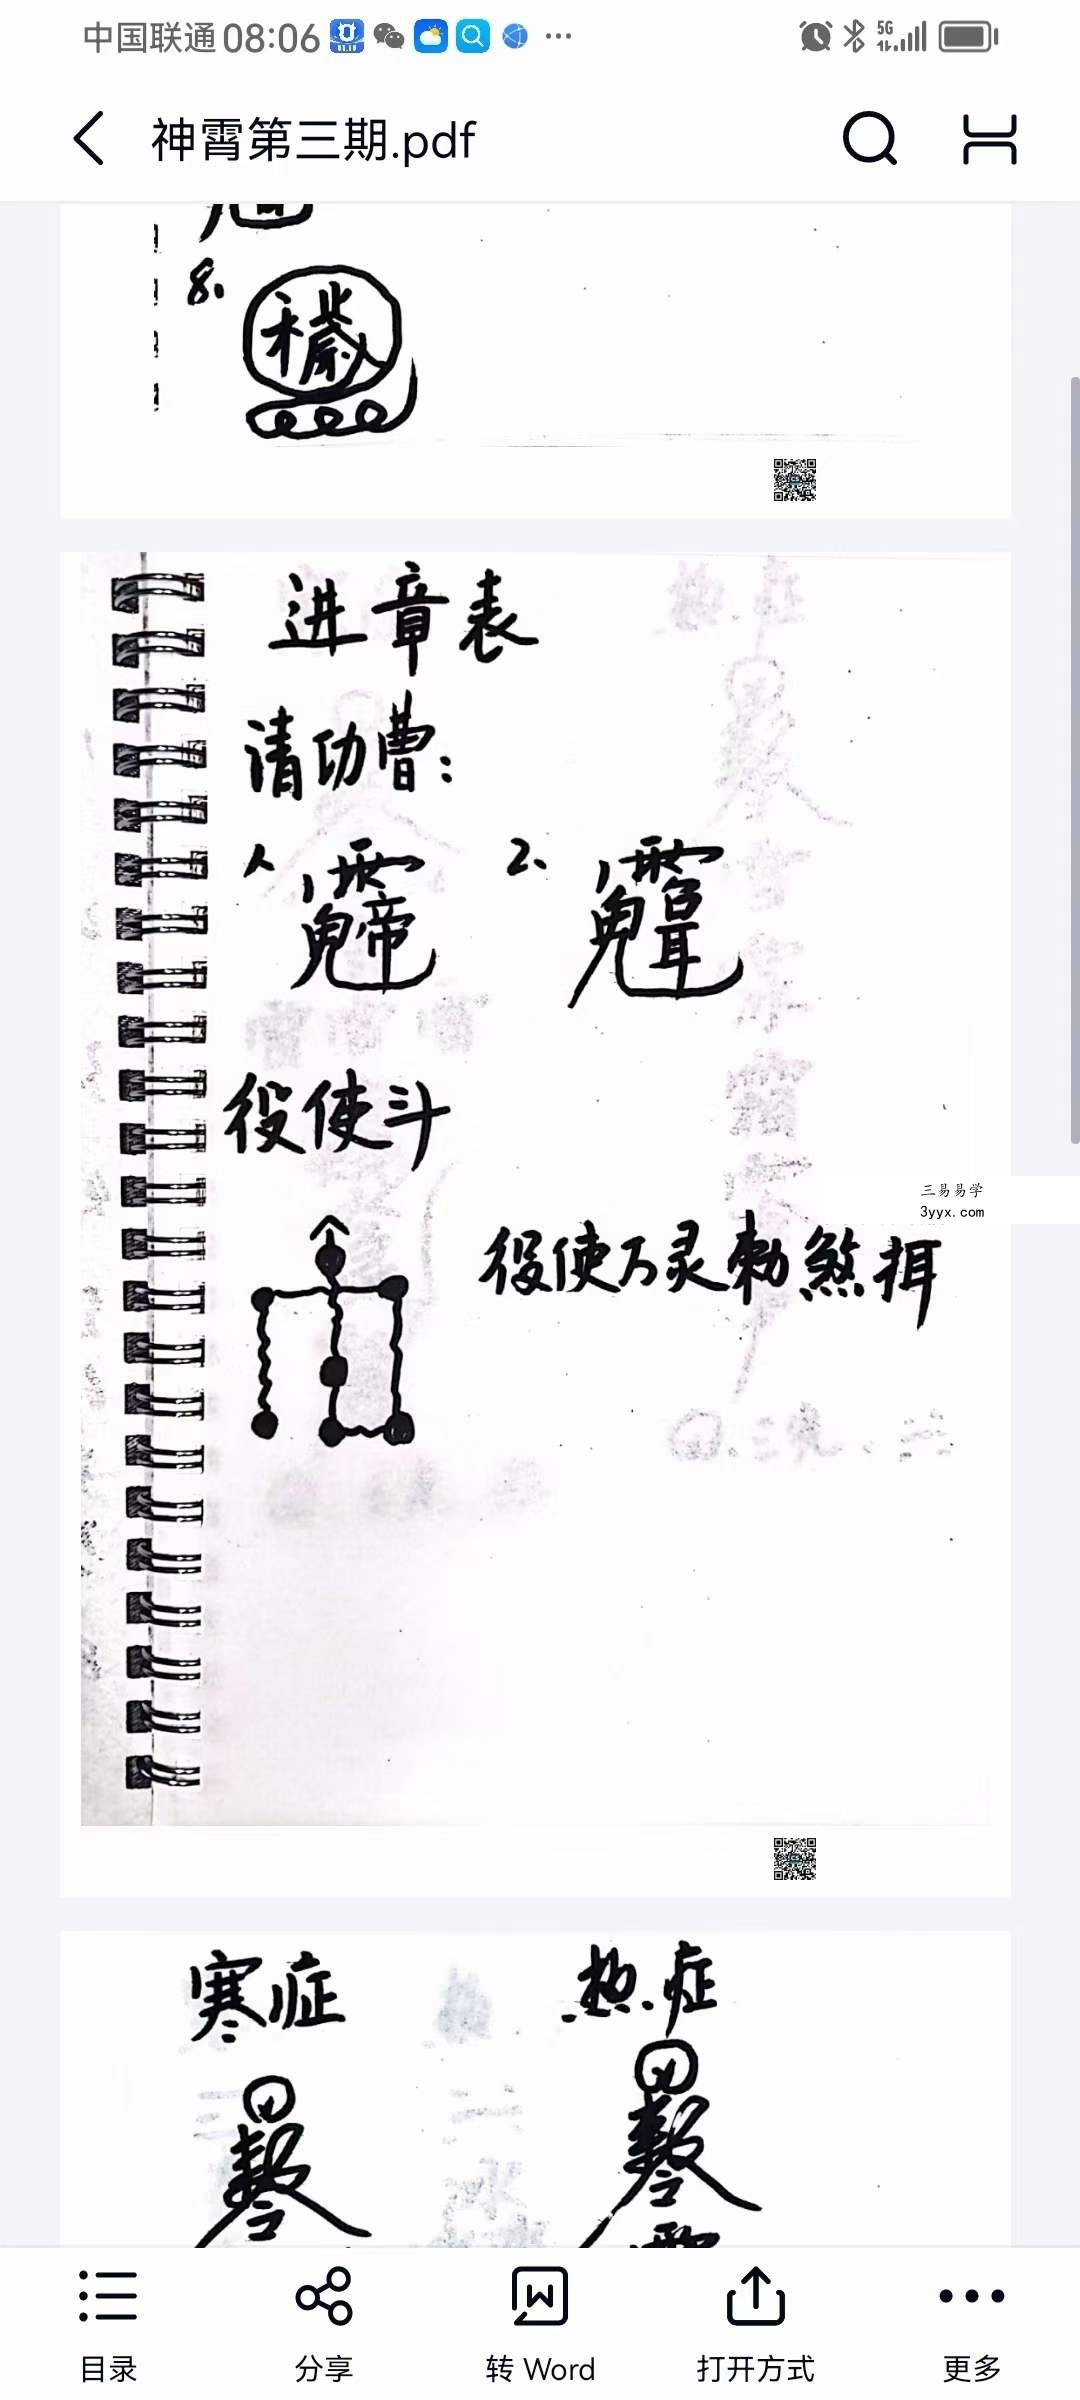 中国联通 08:06
5G
神霄第三期.pdf
8、
进章表
请功曹：
1、 2、
役使斗
三易易学
3yyx.com
役使万灵勅煞
寒症 热症
目录 分享 转 Word 打开方式 更多